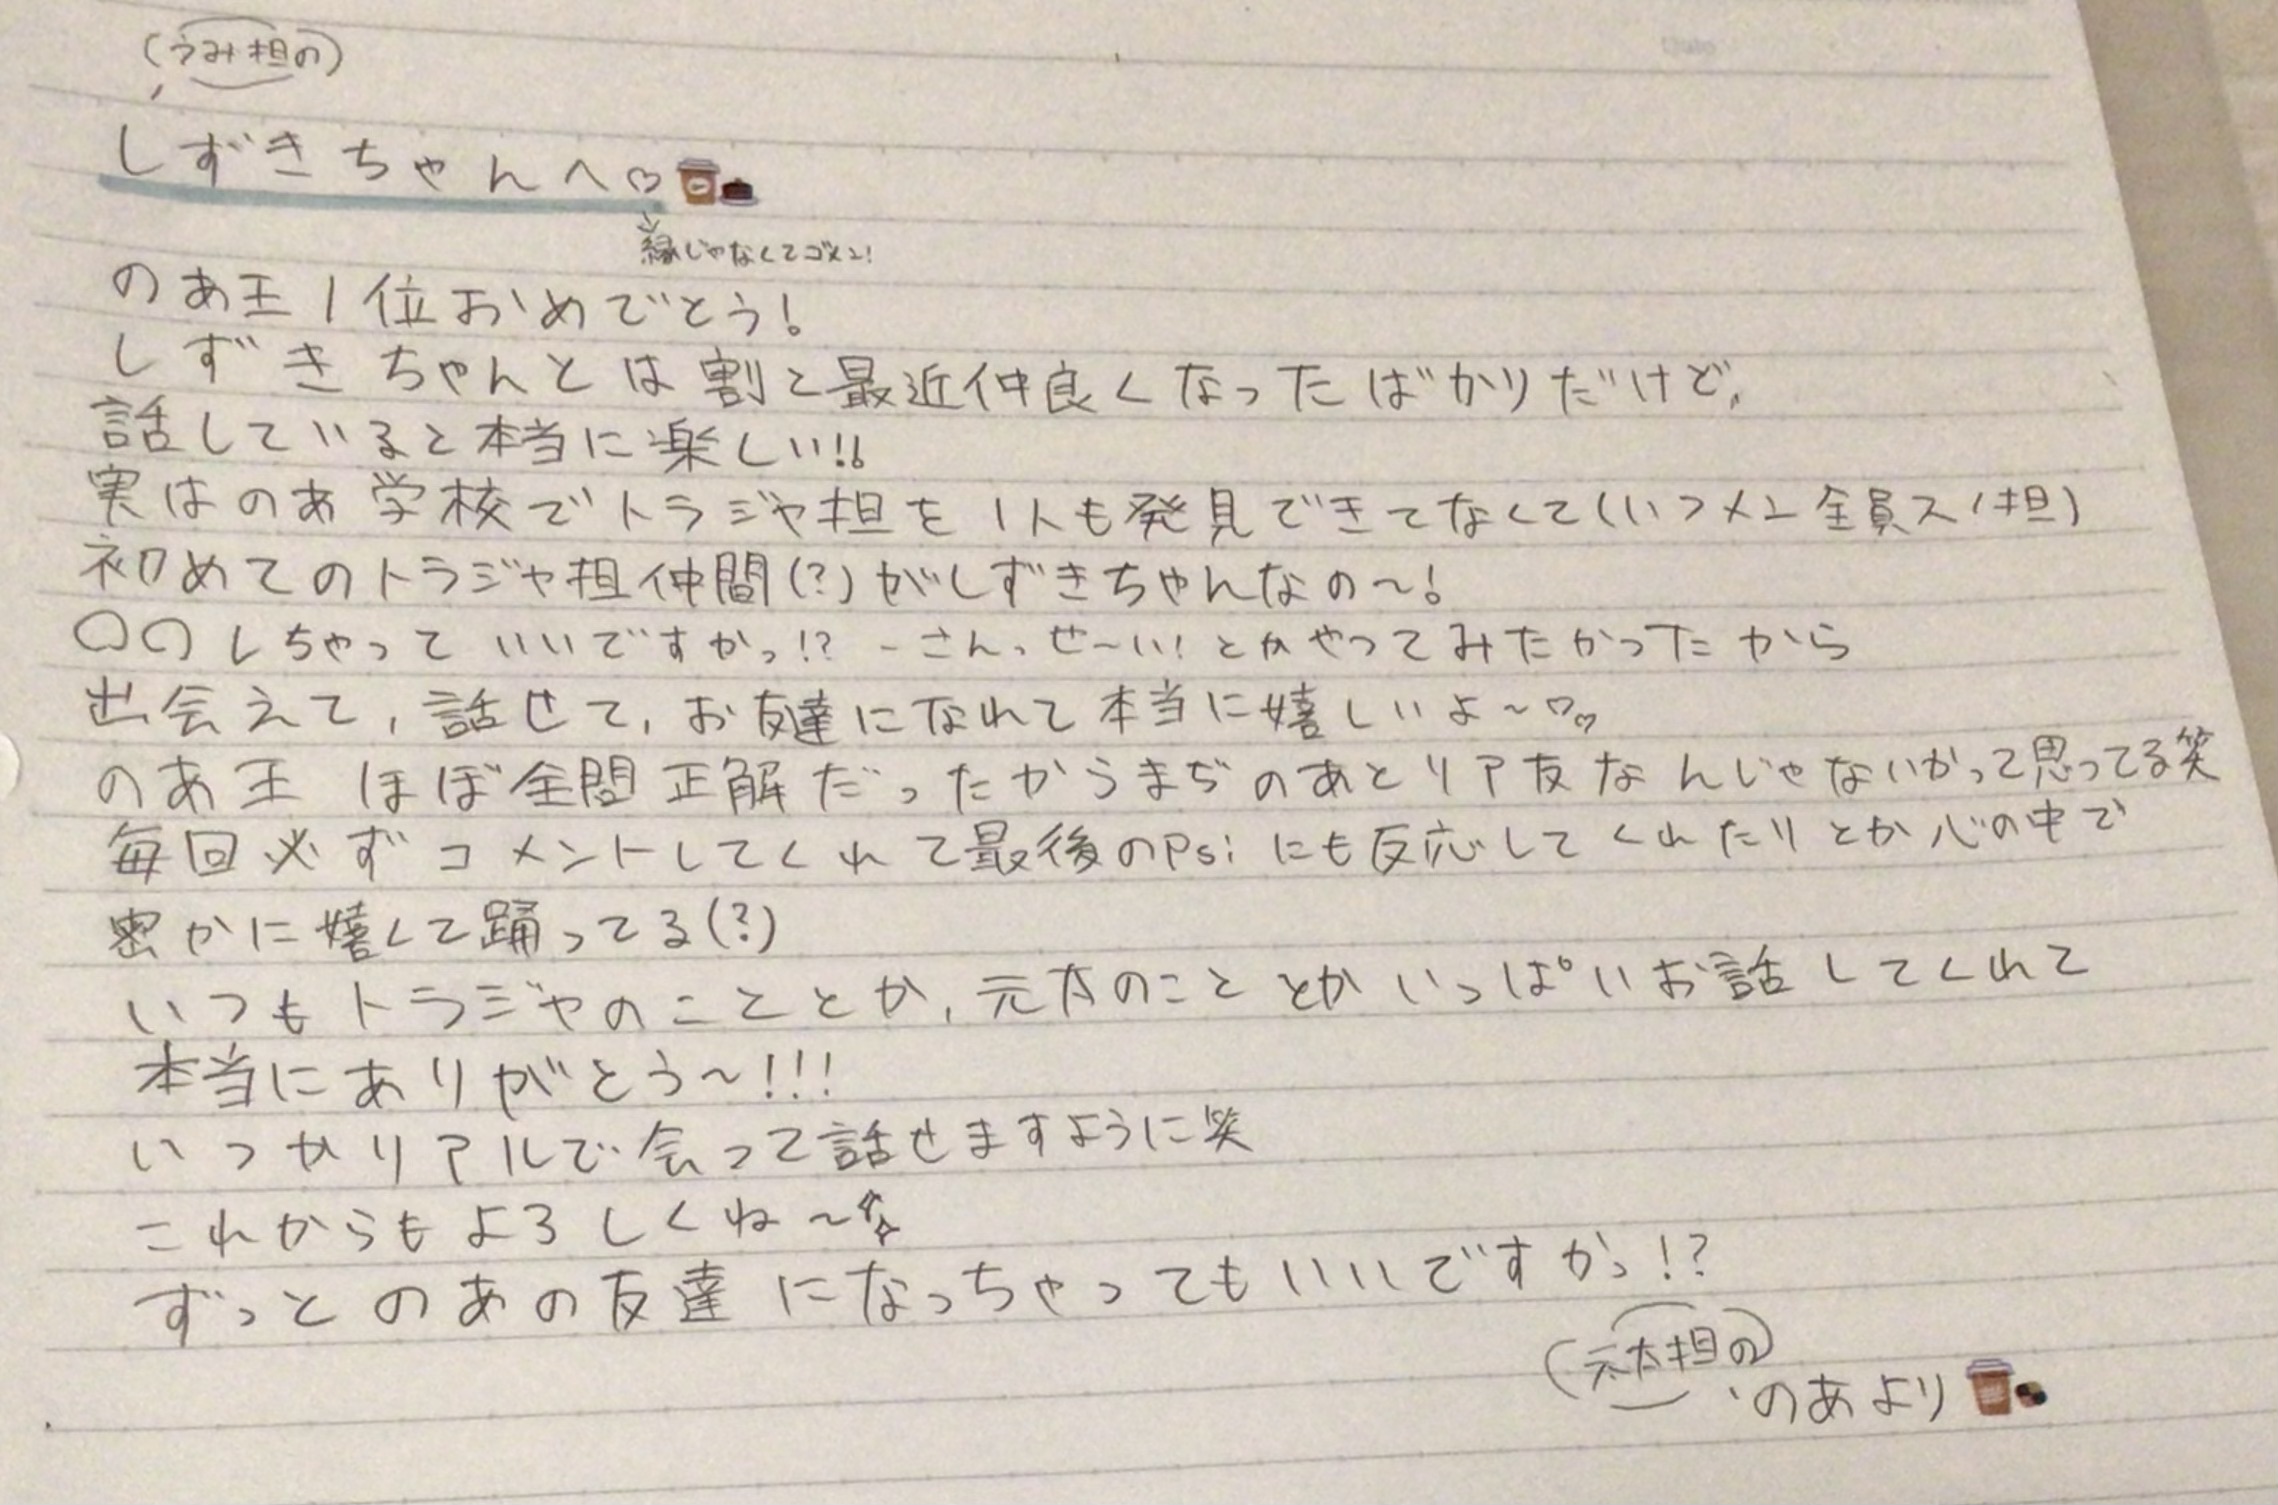 (うみ担の)
しずきちゃんへ♡
↓
緑じゃなくてゴメン!
のあ王1位おめでとう!
しずきちゃんとは割と最近仲良くなったばかりだけど、
話していると本当に楽しい!!
実はのあ学校でトラジャ担を1人も発見できてなくて(いつメン全員スノ担)
初めてのトラジャ担仲間(?)がしずきちゃんなの〜!
〇〇しちゃっていいですかっ!? ーさんっせ〜い!とかやってみたかったから
出会えて、話せて、お友達になれて本当に嬉しいよ〜♡♡
のあ王 ほぼ全問正解だったからまぢのあとリア友なんじゃないかって思ってる笑
毎回必ずコメントしてくれて最後のPsiにも反応してくれたりとか心の中で
密かに嬉しくて踊ってる(?)
いつもトラジャのこととか、元太のこととかいっぱいお話してくれて
本当にありがとう〜!!!
いつかリアルで会って話せますように笑
これからもよろしくね〜
ずっとのあの友達になっちゃってもいいですかっ!?
(元太担の)
のあより